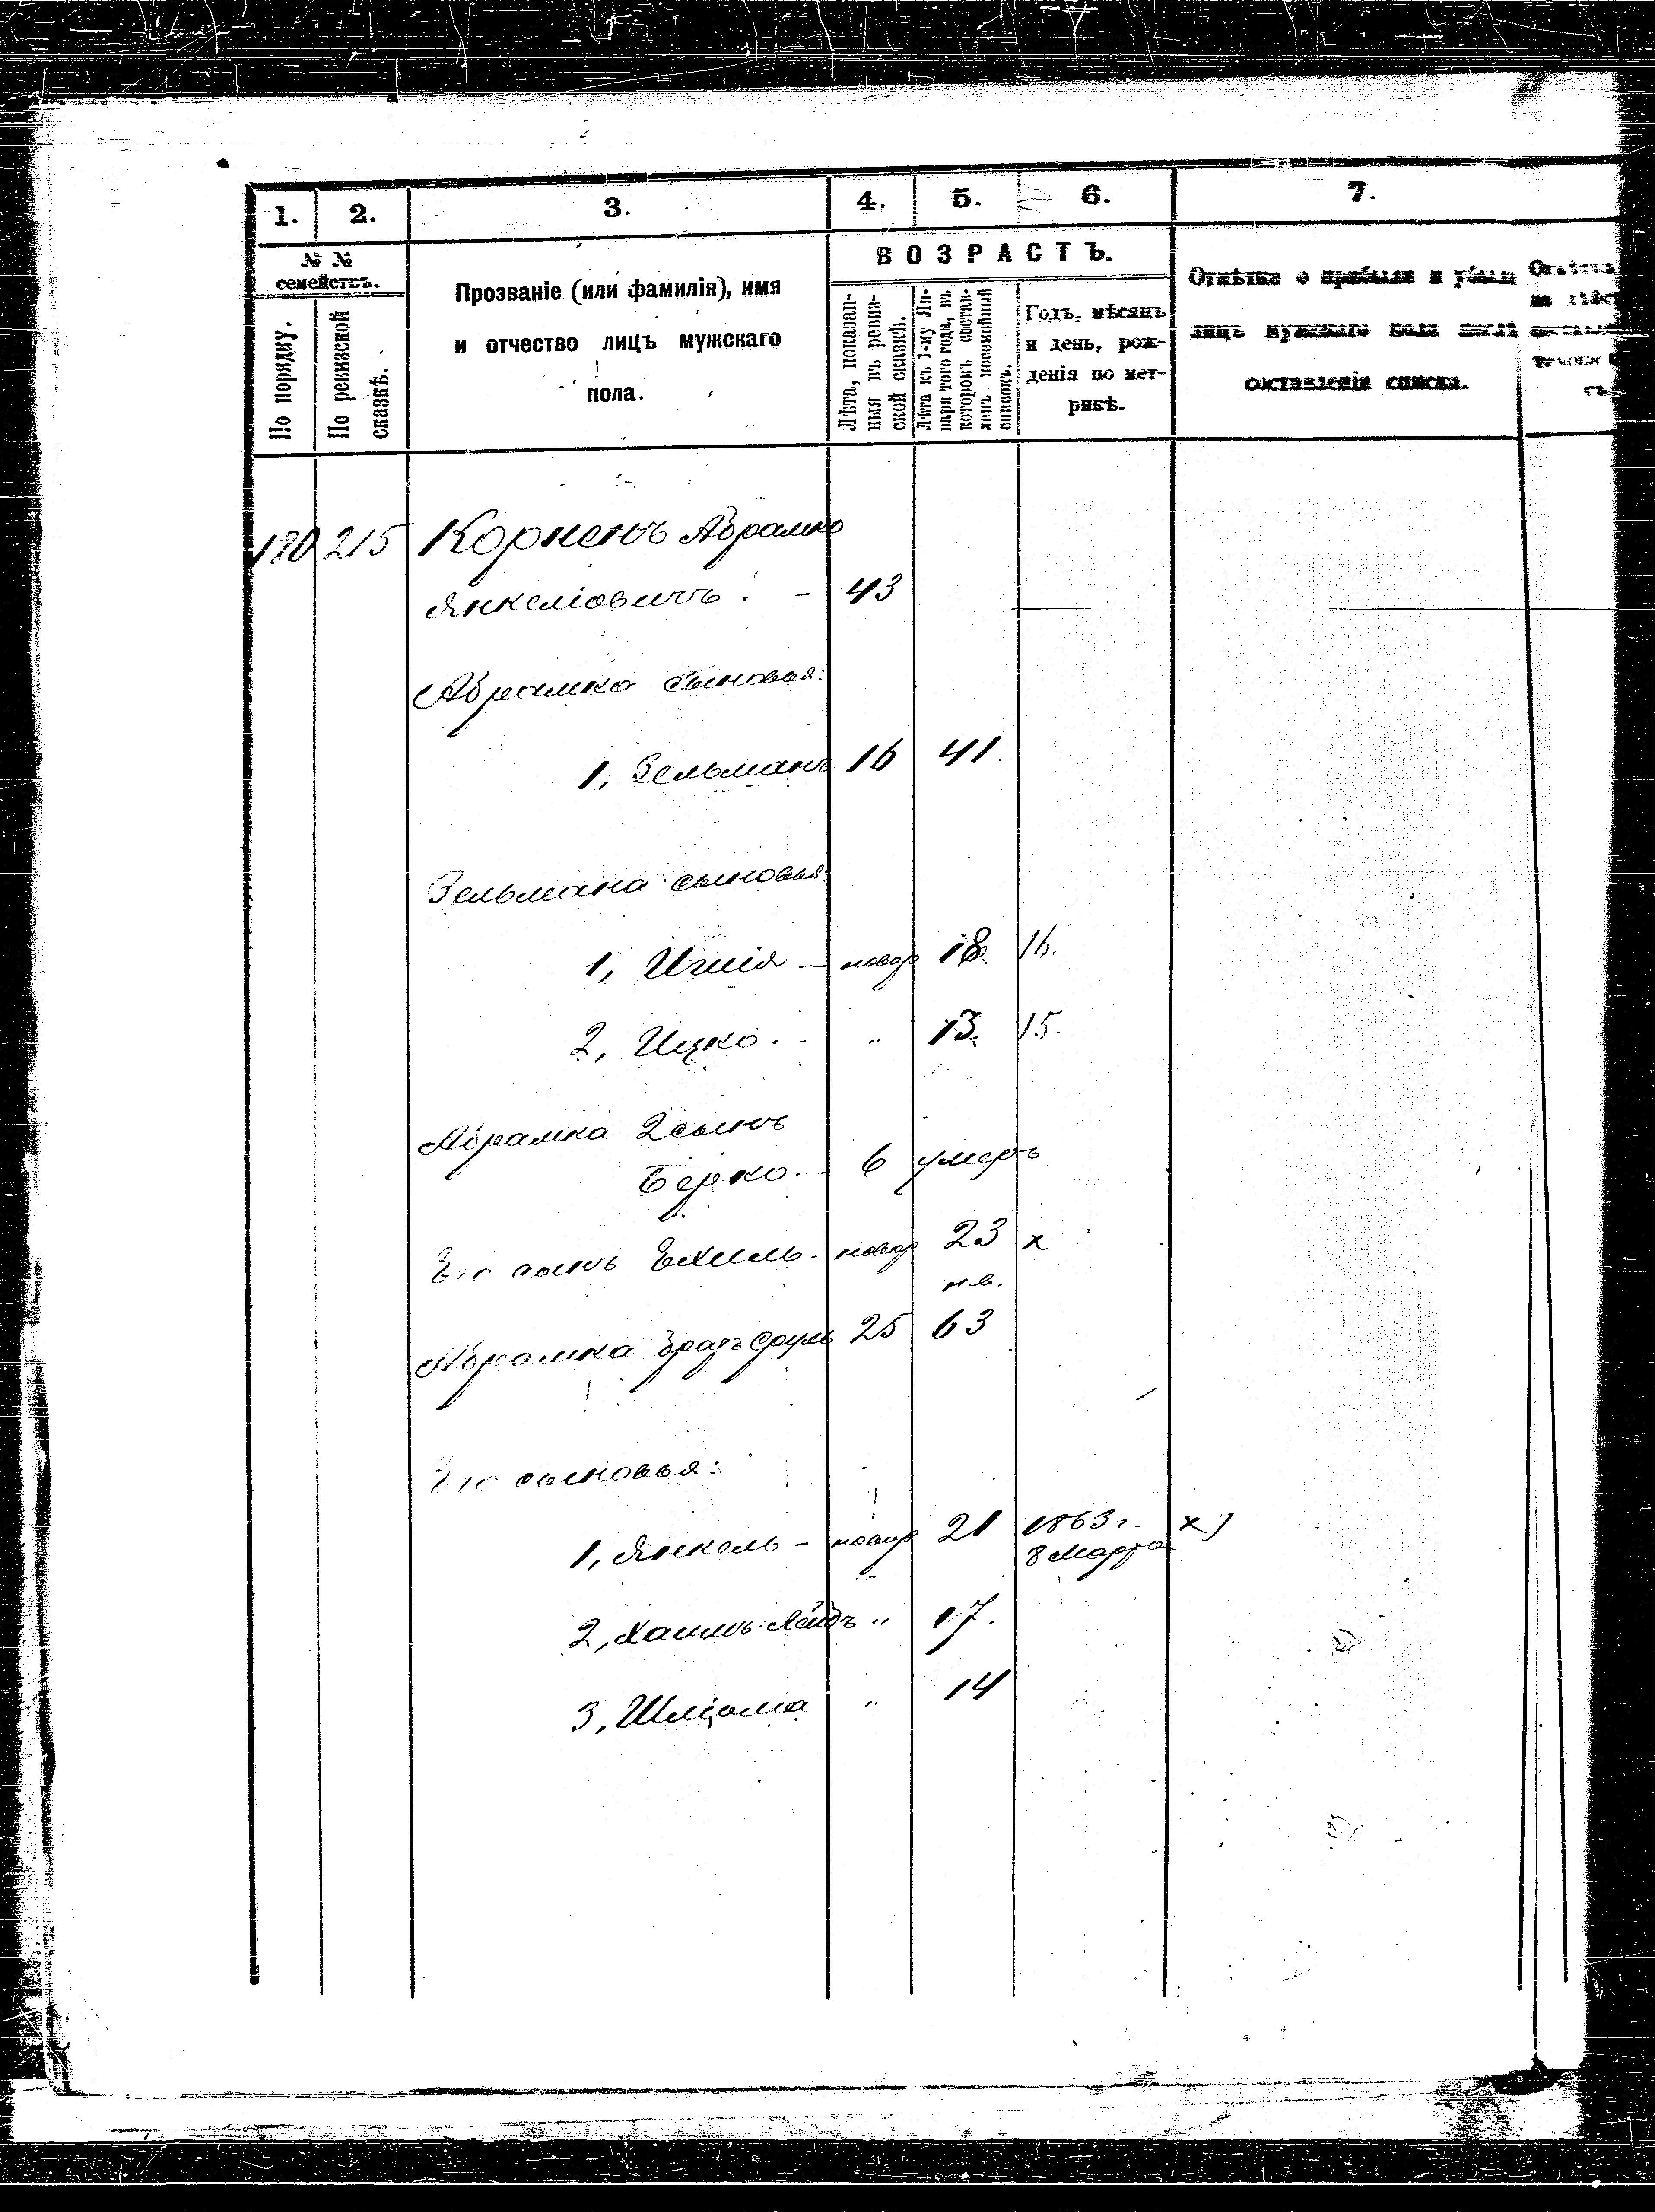 1. 2. 3. 4. 5. 6. 7.
№ №
семействъ.
По порядку.
По ревизской
сказкѣ.
Прозваніе (или фамилія), имя
и отчество лицъ мужскаго
пола.
ВОЗРАСТЪ.
Лѣта, показан-
ныя въ ревиз-
ской сказкѣ.
Лѣта къ 1-му Ян-
варя того года, въ
которомъ состав-
ленъ посемейный
списокъ.
Годъ, мѣсяцъ
и день, рож-
денія по мет-
рикѣ.
Отмѣтка о прибыли и убыли
лицъ мужскаго пола послѣ
составленія списка.
215 Корненъ Абрамко
Янкеліовичъ. - 43
Абрамка сыновья:
1, Зельманъ 16 41.
Зельмана сыновья:
1, - новор 18. 16.
2, Ицко. " 13. 15.
Абрамка 2 сынъ
Берко - 6 умеръ
Его сынъ Ехиль - новор 23 x
Абрамка братъ Сруль 25 63
Его сыновья:
1, Янкель - новор 21 1863 г. x)
8 Марта
2, Хаимъ " 17.
3, Шліома " 14